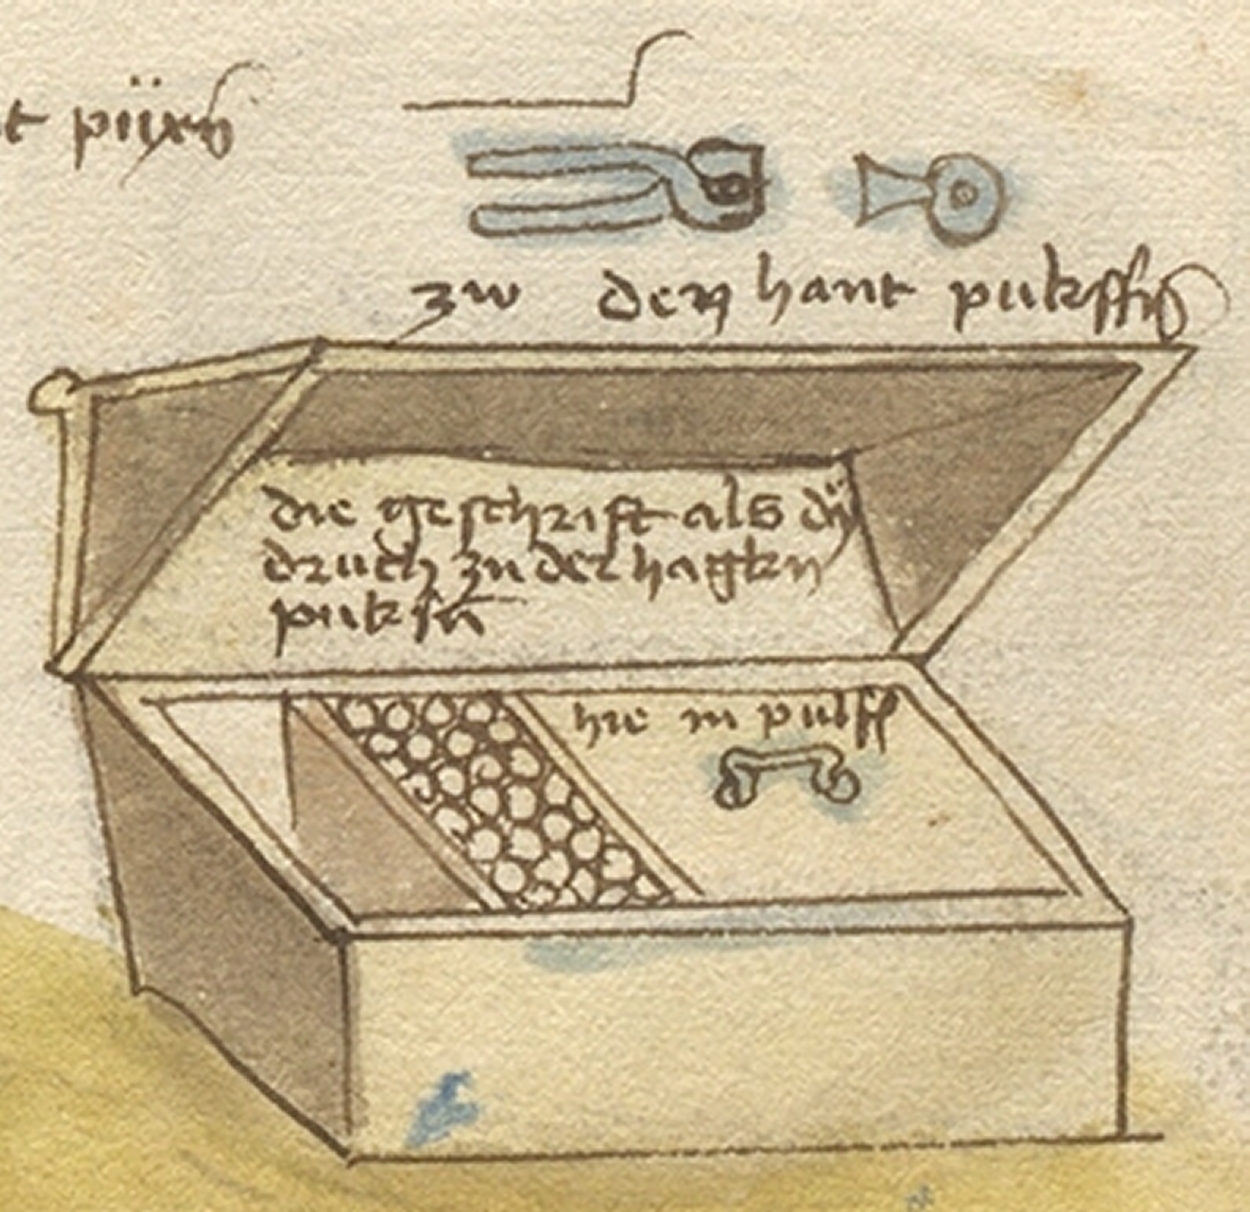 t püxn
zw den hant pukssn
die geschrift als dÿ
druch zu der hagkn
puksn
hie in pulff